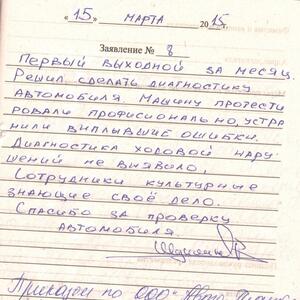 «15» МАРТА 2015.
Заявление № 8
Первый выходной за месяц.
Решил сделать диагностику
автомобиля. Машину протести
ровали профисионально, устра
нили выплывшие ошибки.
Диагностика ходовой нару
шений не выявило,
Сотрудники культурные
знающие своё дело.
Спасибо за проверку
автомобиля.
Приказом по ООО "Авто